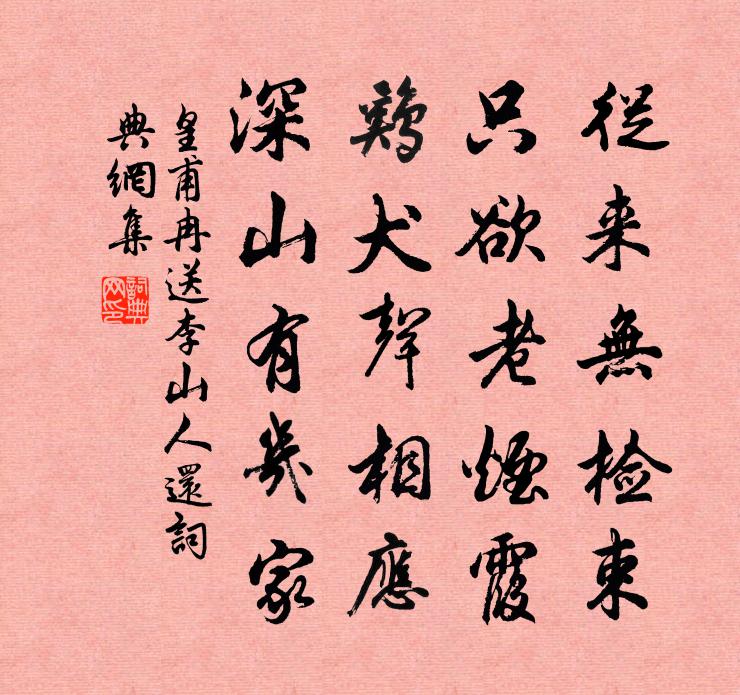 從来無檢束
只欲老煙霞
鷄犬聲相應
深山有幾家
皇甫冉送李山人還詞
典網集
詞典網印